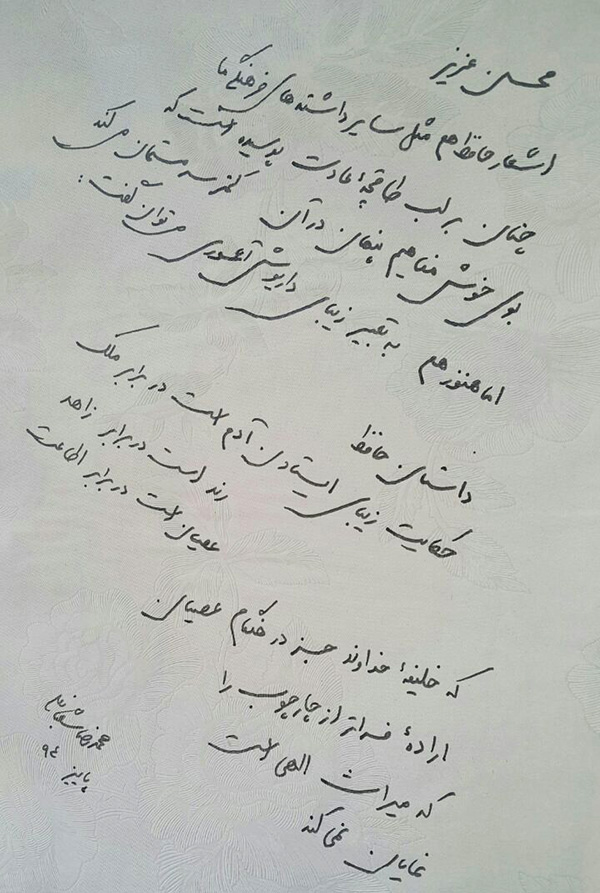 محسن عزیز
اشعار حافظ هم مثل سایر داشته‌های فرهنگی ما
چنان بر لب طاقچهٔ عادت پوسیده است که
بوی خوش مفاهیم پنهان در آن کمتر سرمستمان می‌کند
اما هنوز هم به تعبیر زیبای داریوش آشوری می‌توان گفت:
داستان حافظ
حکایت زیبای ایستادن آدم است در برابر ملک
رند است در برابر زاهد
عصیان است در برابر اطاعت
که خلیفهٔ خداوند جز در هنگام عصیان
ارادهٔ فراتر از چارچوب را
که میراث الهی است
نمایان نمی‌کند
محمدرضا شعبانعلی
پاییز ۹۴